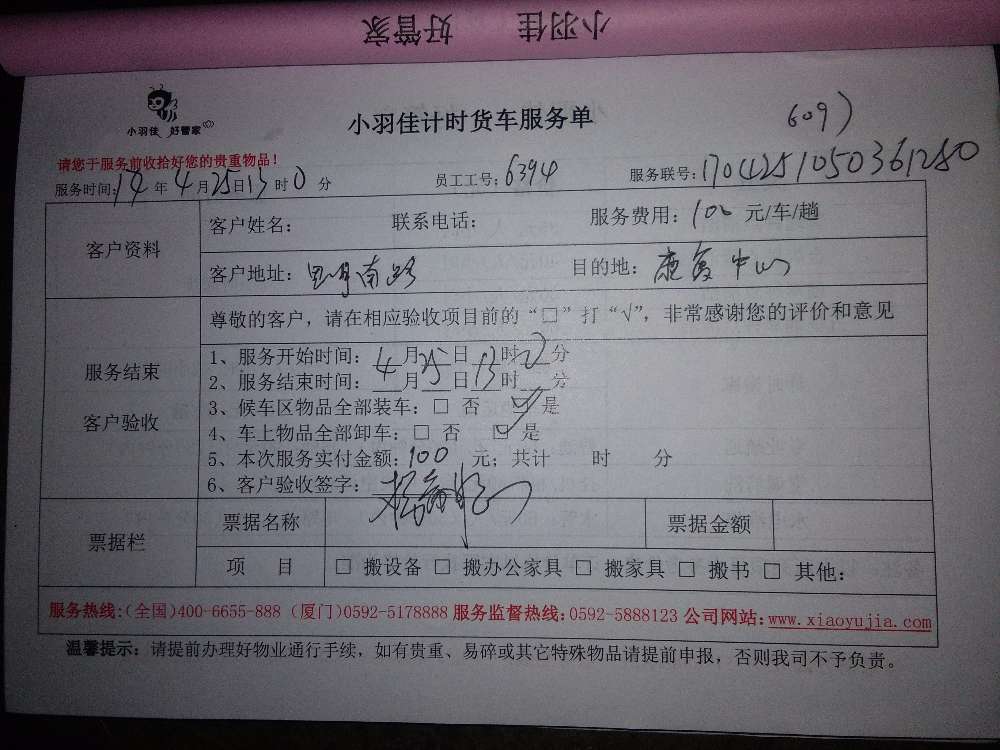 小羽佳 好管家
小羽佳 好管家
小羽佳计时货车服务单
609)
请您于服务前收拾好您的贵重物品!
服务时间:17年4月25日13时0分 员工工号:6394 服务联号:1704251050361280
客户资料
客户姓名: 联系电话: 服务费用:100元/车/趟
客户地址: 南路 目的地:康复中心
服务结束
客户验收
尊敬的客户,请在相应验收项目前的“□”打“√”,非常感谢您的评价和意见
1、服务开始时间:4月25日13时 分
2、服务结束时间: 月 日 时 分
3、候车区物品全部装车:□ 否 □ 是
4、车上物品全部卸车:□ 否 □ 是
5、本次服务实付金额:100 元;共计 时 分
6、客户验收签字:
票据栏
票据名称 票据金额
项 目 □ 搬设备 □ 搬办公家具 □ 搬家具 □ 搬书 □ 其他:
服务热线:(全国)400-6655-888 (厦门)0592-5178888 服务监督热线:0592-5888123 公司网站:www.xiaoyujia.com
温馨提示:请提前办理好物业通行手续,如有贵重、易碎或其它特殊物品请提前申报,否则我司不予负责。